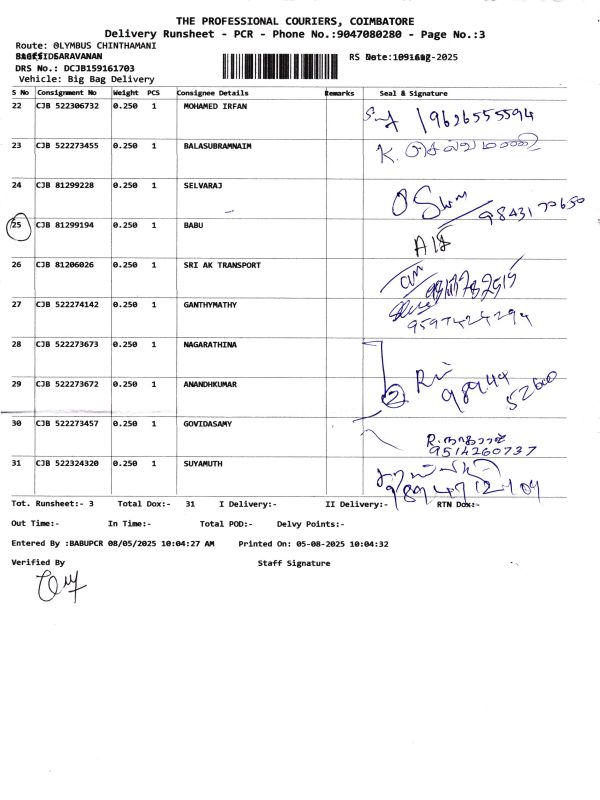 THE PROFESSIONAL COURIERS, COIMBATORE
Delivery Runsheet - PCR - Phone No.:9047080280 - Page No.:3
Route: OLYMBUS CHINTHAMANI
SARAVANAN
RS Date: -2025
DRS No.: DCJB159161703
Vehicle: Big Bag Delivery
S No Consignment No Weight PCS Consignee Details Remarks Seal & Signature
22 CJB 522306732 0.250 1 MOHAMED IRFAN 9626555594
23 CJB 522273455 0.250 1 BALASUBRAMNAIM K.
24 CJB 81299228 0.250 1 SELVARAJ 9843170650
25 CJB 81299194 0.250 1 BABU
26 CJB 81206026 0.250 1 SRI AK TRANSPORT
27 CJB 522274142 0.250 1 GANTHYMATHY
28 CJB 522273673 0.250 1 NAGARATHINA
29 CJB 522273672 0.250 1 ANANDHKUMAR 2 98949 52600
30 CJB 522273457 0.250 1 GOVIDASAMY 9514260737
31 CJB 522324320 0.250 1 SUYAMUTH
Tot. Runsheet:- 3 Total Dox:- 31 I Delivery:- II Delivery:- RTN Dox:-
Out Time:- In Time:- Total POD:- Delvy Points:-
Entered By :BABUPCR 08/05/2025 10:04:27 AM Printed On: 05-08-2025 10:04:32
Verified By Staff Signature